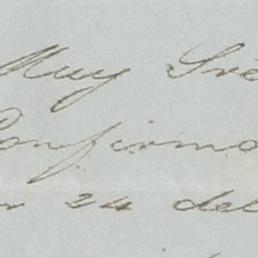 Muy Sres
Confirmo
24 del